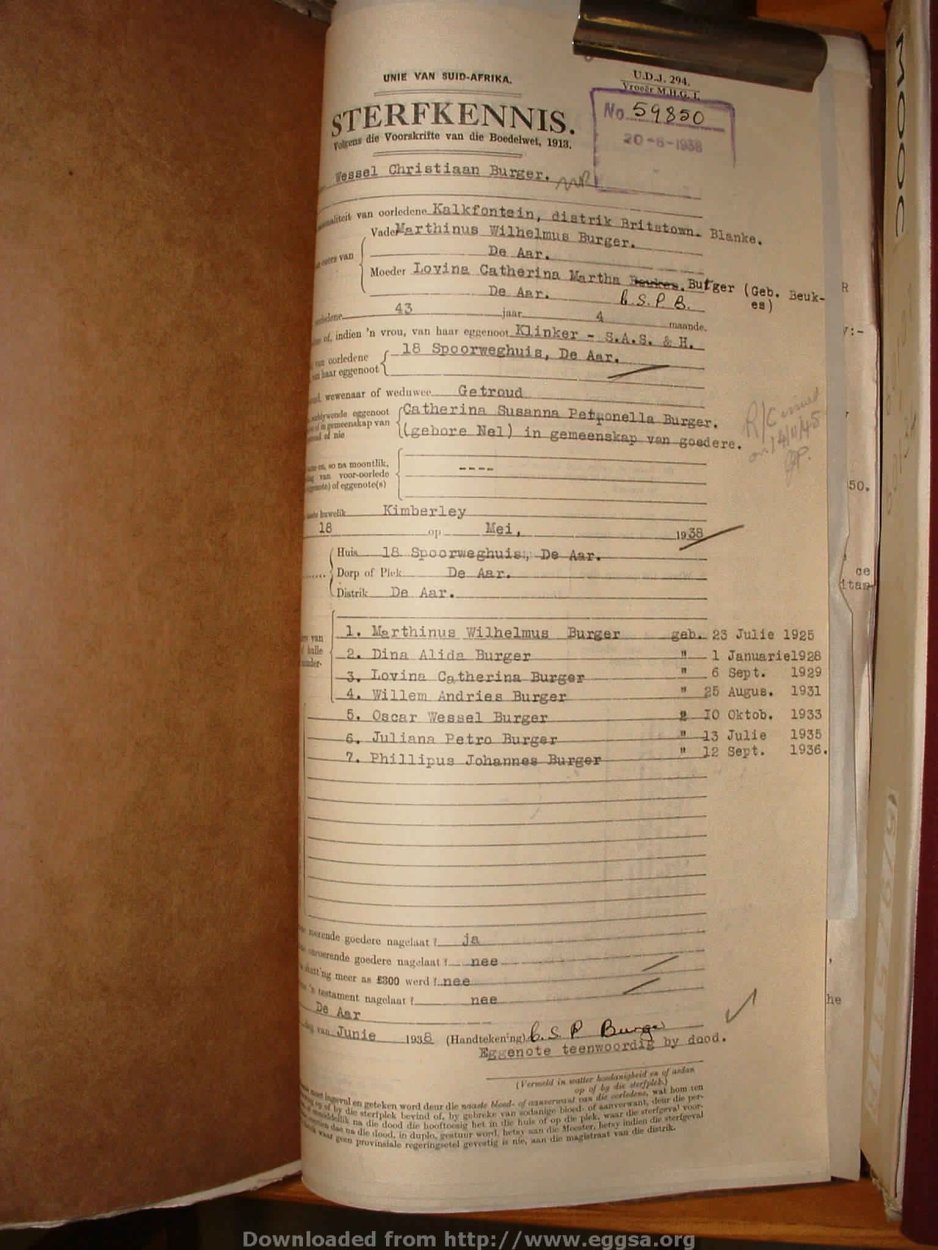 UNIE VAN SUID-AFRIKA.
U.D.J. 294.
Vroeër M.H.G. 1.
STERFKENNIS.
Volgens die Voorskrifte van die Boedelwet, 1913.
No. 59850
20-6-1938
Wessel Christiaan Burger.
van oorledene Kalkfontein, distrik Britstown. Blanke.
Vader Marthinus Wilhelmus Burger.
van
De Aar.
Moeder Lovina Catherina Martha Beukes. Burger (Geb. Beuk-es)
De Aar. C.S.P.B.
43 jaar 4 maande.
of, indien 'n vrou, van haar eggenoot Klinker - S.A.S. & H.
van oorledene
van haar eggenoot
18 Spoorweghuis, De Aar.
wewenaar of weduwee Getroud
eggenoot
in gemeenskap van
of nie
Catherina Susanna Petronella Burger.
(gebore Nel) in gemeenskap van goedere.
so na moontlik,
van voor-oorlede
of eggenote(s)
----
huwelik Kimberley
18 op Mei, 1938
Huis 18 Spoorweghuis, De Aar.
Dorp of Plek De Aar.
Distrik De Aar.
1. Marthinus Wilhelmus Burger geb. 23 Julie 1925
2. Dina Alida Burger " 1 Januarie1928
3. Lovina Catherina Burger " 6 Sept. 1929
4. Willem Andries Burger " 25 Augus. 1931
5. Oscar Wessel Burger " 10 Oktob. 1933
6. Juliana Petro Burger " 13 Julie 1935
7. Phillipus Johannes Burger " 12 Sept. 1936.
goedere nagelaat? ja
goedere nagelaat? nee
meer as £300 werd? nee
testament nagelaat? nee
De Aar
van Junie 1938 (Handtekening) C. S. P Burger
Eggenote teenwoordig by dood.
(Vermeld in watter hoedanigheid en of aedan
op of by die sterfplek.)
en geteken word deur die naaste bloed- of aanverwant van die oorledene, wat hom ten
of by die sterfplek bevind of, by gebreke van sodanige bloed- of aanverwant, deur die per-
na die dood die hooftoesig het in die huis of op die plek, waar die sterfgeval voor-
dae na die dood, in duplo, gestuur word, hetsy aan die Meester, hetsy indien die sterfgeval
waar geen provinsiale regeringsetel gevestig is nie, aan die magistraat van die distrik.
MOOC
Downloaded from http://www.eggsa.org